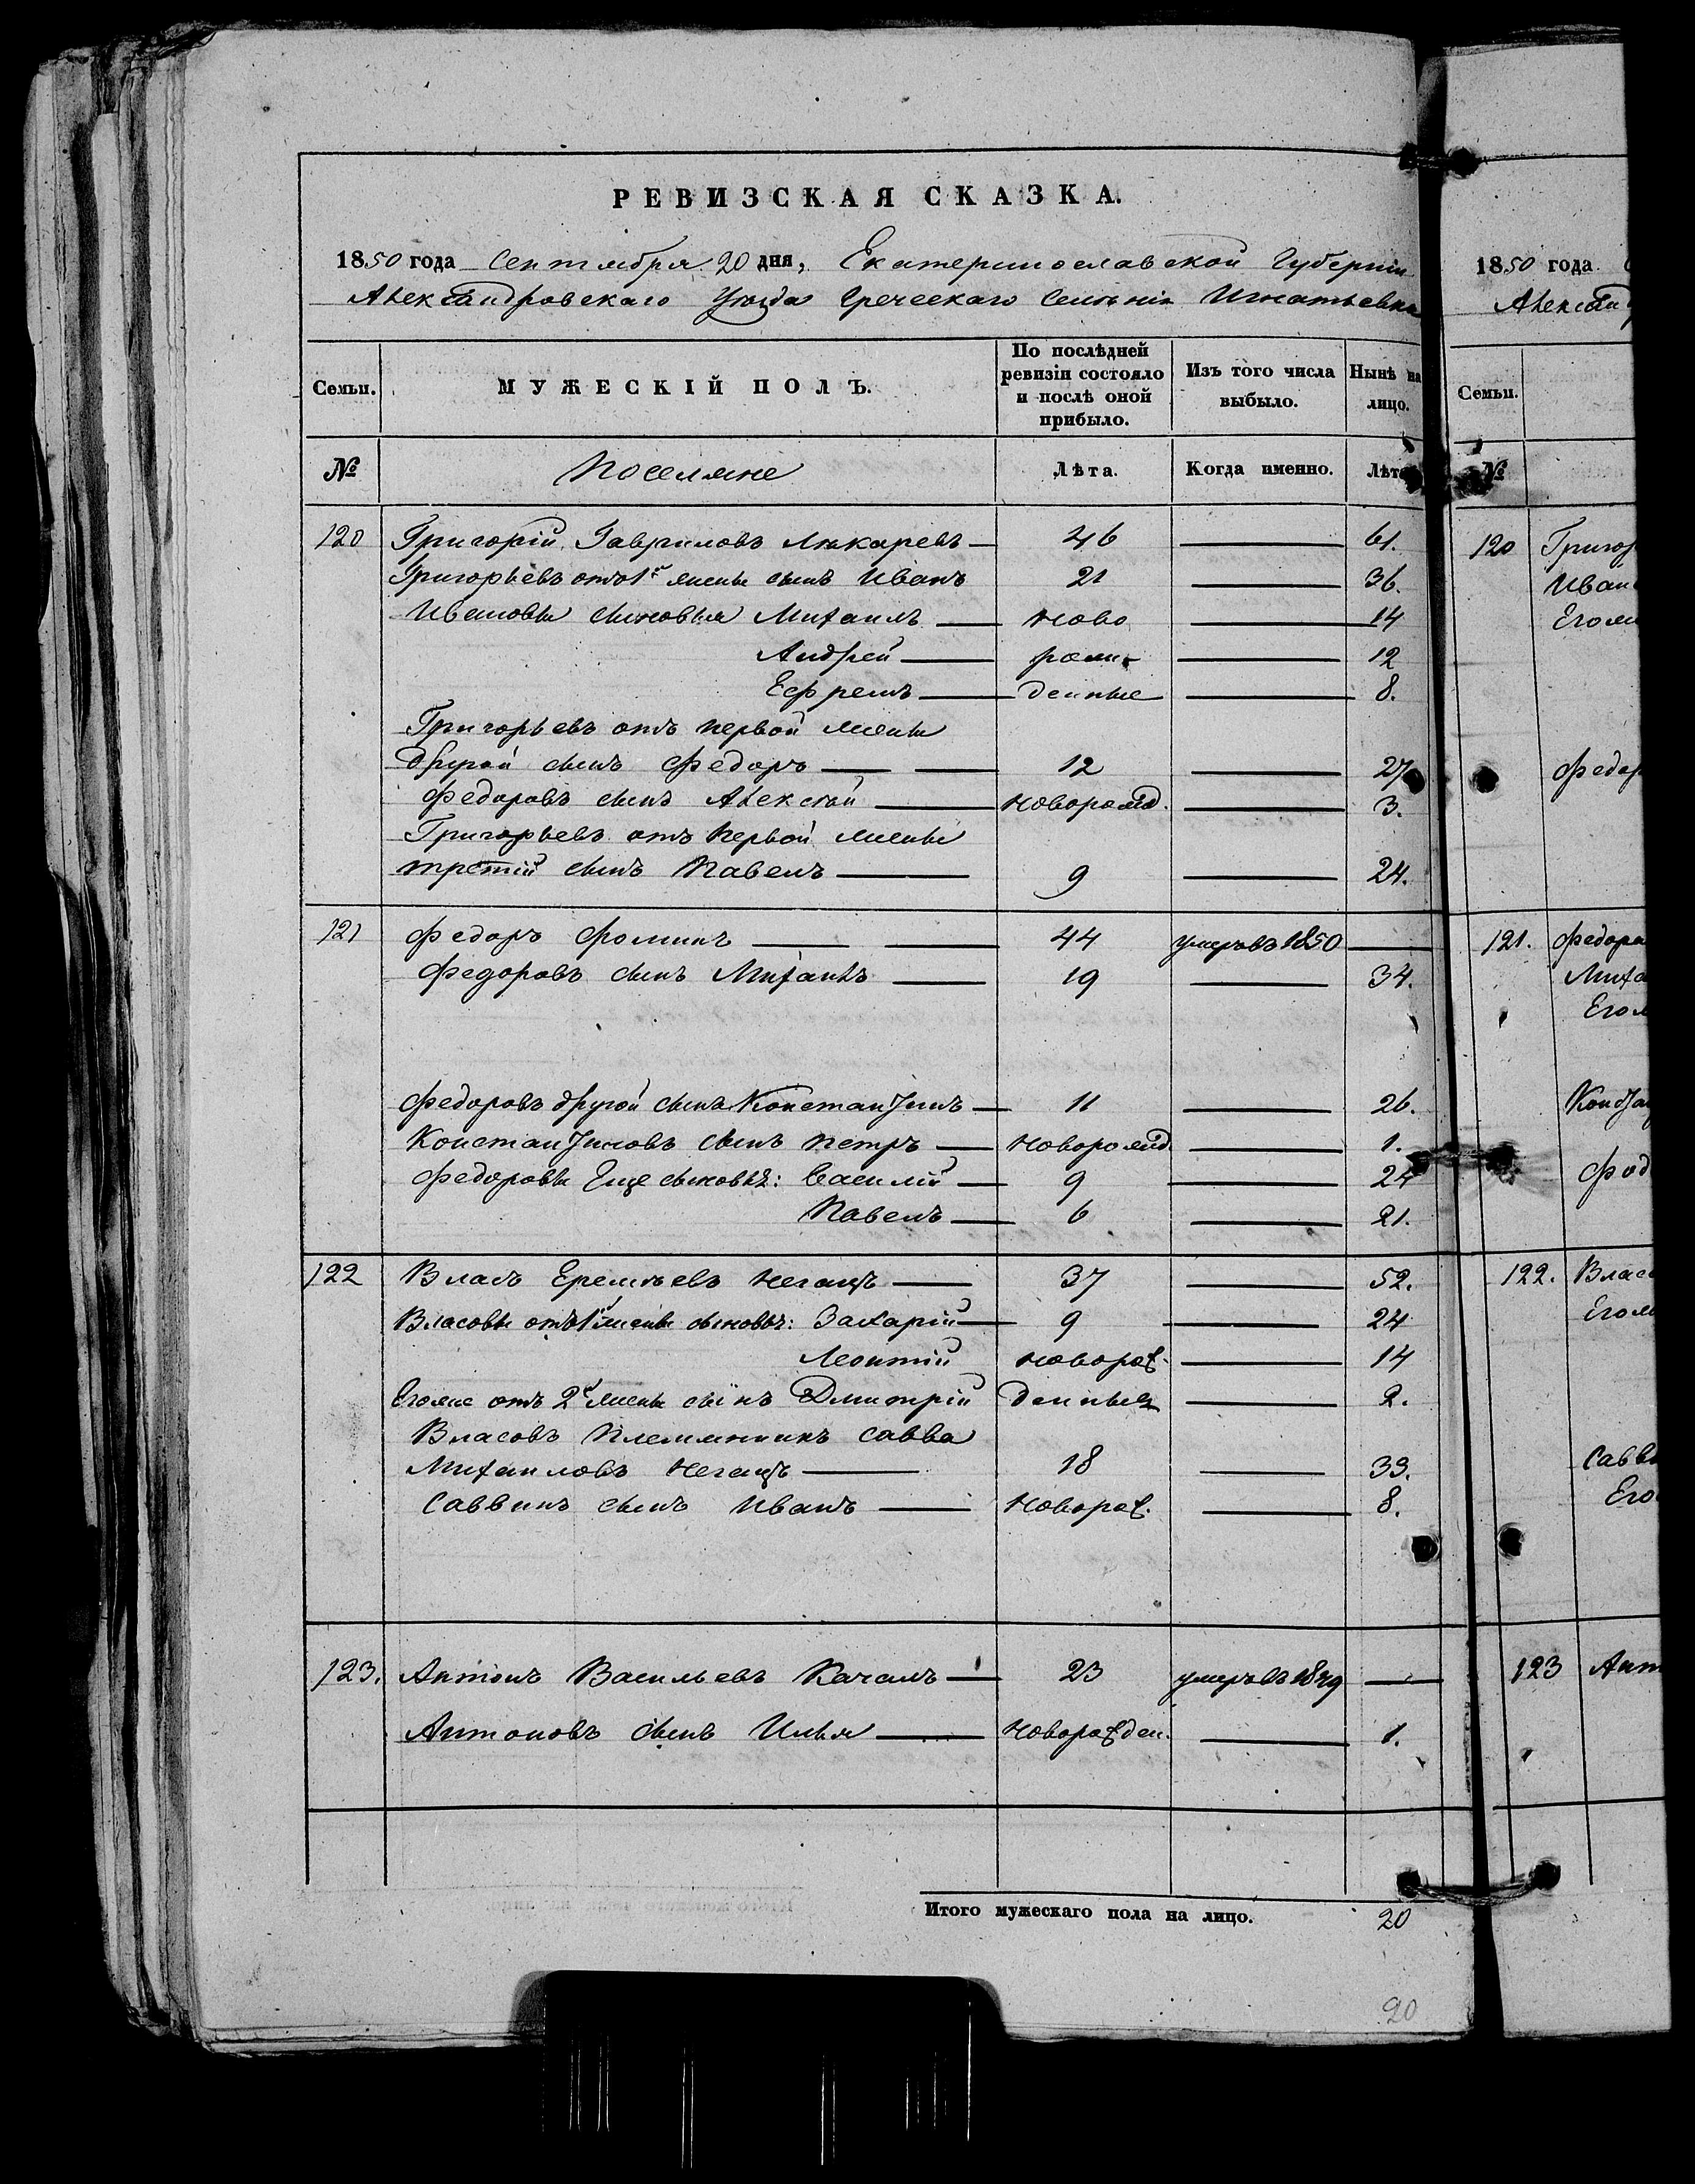 РЕВИЗСКАЯ СКАЗКА.
1850 года Сентября 20 дня, Екатеринославской Губерніи
Александровскаго Уѣзда Греческаго Селенія Игнатьевки
Семьи. МУЖЕСКІЙ ПОЛЪ. По послѣдней ревизіи состояло и послѣ оной прибыло. Изъ того числа выбыло. Нынѣ на лицо.
№ Поселяне Лѣта. Когда именно. Лѣта
120 Григорій Гавриловъ Люкаревъ — 46 — 61.
Григорьевъ отъ 1й жены сынъ Иванъ 21 — 36.
Ивановы сыновья Михаилъ — ново — 14
Андрей — рож- — 12
Ефремъ — денные — 8.
Григорьевъ отъ первой жены
другой сынъ Федоръ — 12 — 27
Федоровъ сынъ Алексѣй — новорожд. — 3.
Григорьевъ отъ первой жены
третій сынъ Павелъ — 9 — 24.
121 Федоръ Фоминъ — 44 умеръ въ 1850 —
Федоровъ сынъ Михаилъ — 19 — 34.
Федоровъ другой сынъ Константинъ — 11 — 26.
Константиновъ сынъ Петръ — новорожд. — 1.
Федоровы Еще сыновья: Василій — 9 — 24
Павелъ — 6 — 21.
122 Власъ Еремѣевъ — 37 — 52.
Власовы отъ 1й жены сыновья: Захарій — 9 — 24
Леонтій новорож- — 14
Егоже отъ 2й жены сынъ Дмитрій денные — 2.
Власовъ Племянникъ Савва
Михаиловъ — 18 — 33.
Саввинъ сынъ Иванъ — новорож. — 8.
123. Антонъ Васильевъ Качанъ — 23 умеръ въ 1849 —
Антоновъ сынъ Илья — новорожден. — 1.
Итого мужескаго пола на лицо. 20
20
1850 года
Александ
Семьи.
№
120 Григор
Иван
Егож
Федор
121. Федора
Миха
Егож
Конста
Фед
122. Влас
Егож
Савв
Его
123 Ант